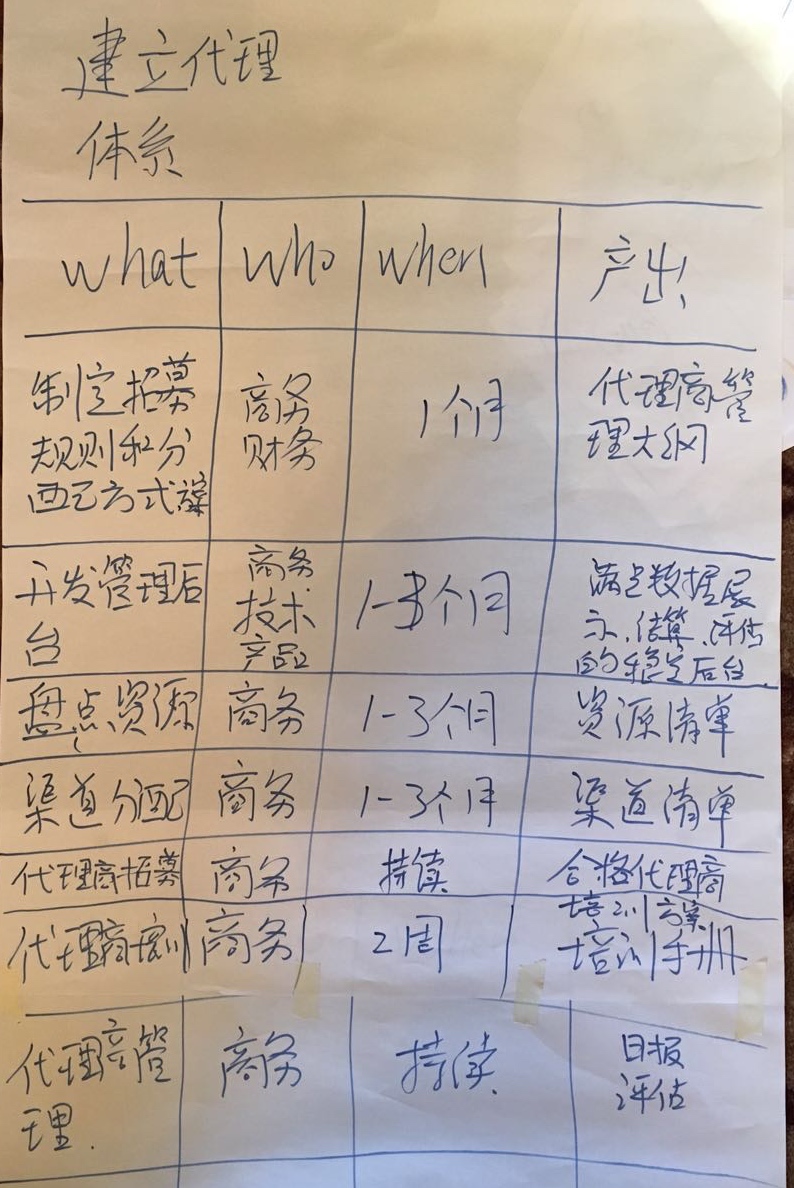 建立代理
体系
what who when 产出
制定招募
规则和分
配方式
商务
财务
1个月
代理商管
理大纲
开发管理后
台
商务
技术
产品
1-3个月
满足数据展
示、结算、评估
的稳定后台
盘点资源 商务 1-3个月 资源清单
渠道分配 商务 1-3个月 渠道清单
代理商招募 商务 持续 合格代理商
代理商培训 商务 2周
培训方案
培训手册
代理商管
理.
商务
持续
日报
评估